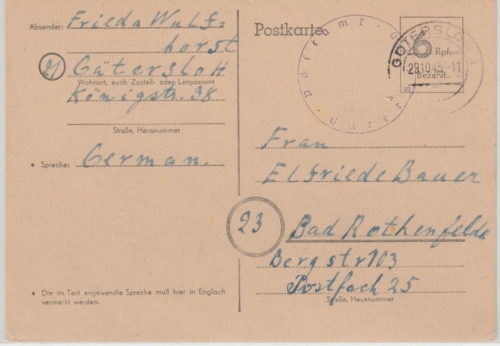 Absender: Frieda Wulf-
horst
21 Gütersloh
Wohnort, auch Zustell- oder Leitpostamt
Königstr. 38
Straße, Hausnummer
• Sprache: German.
• Die im Text angewandte Sprache muß hier in Englisch
vermerkt werden.
Postkarte
6 Rpf.
Bezahlt
GÜTERSLOH
29.10.45.-11
Frau
Elfriede Bauer
23 Bad Rothenfelde
Bergstr 103
Postfach 25
Straße, Hausnummer